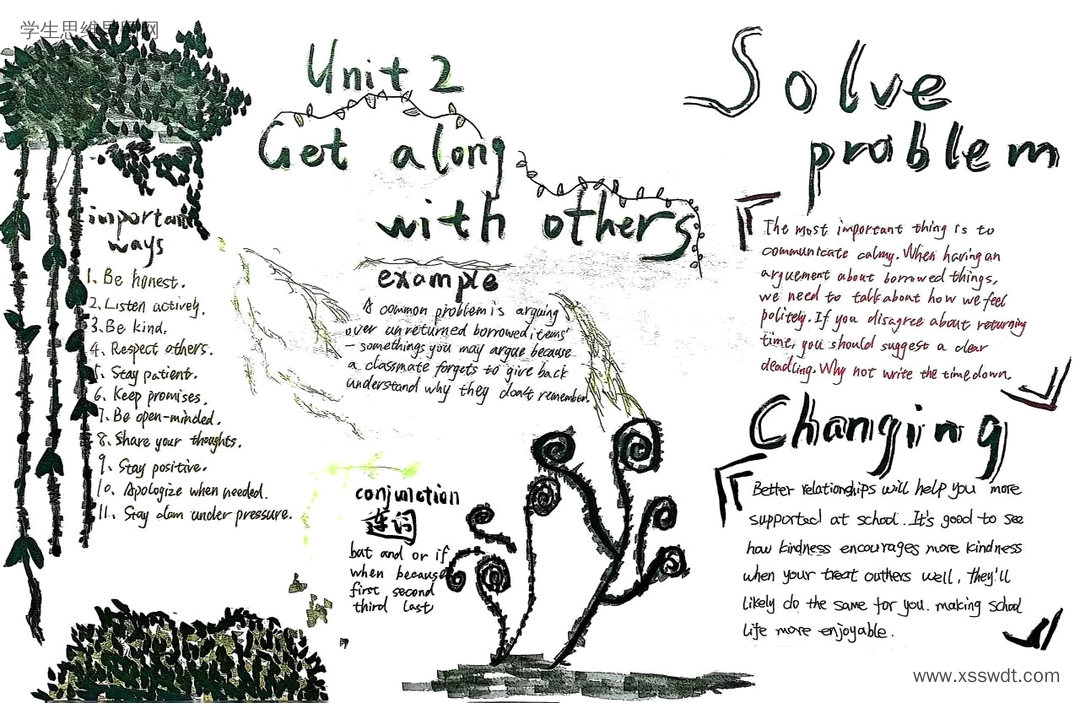 学生思维导图网
Unit 2
Get along
with others
important
ways
1. Be honest.
2. Listen actively.
3. Be kind.
4. Respect others.
5. Stay patient.
6. Keep promises.
7. Be open-minded.
8. Share your thoughts.
9. Stay positive.
10. Apologize when needed.
11. Stay clam under pressure.
example
A common problem is arguing
over unreturned borrowed items
– somethings you may argue because
a classmate forgets to give back
understand why they don't remember.
conjunction
连词
bat and or if
when because
first second
third last
Solve
problem
The most important thing is to
communicate calmy. When having an
arguement about borrowed things,
we need to talk about how we feel
politely. If you disagree about returning
time, you should suggest a clear
deadling. Why not write the time down
Changing
Better relationships will help you more
supported at school. It's good to see
how kindness encourages more kindness
when your treat outhers well, they'll
likely do the same for you. making school
life more enjoyable.
www.xsswdt.com